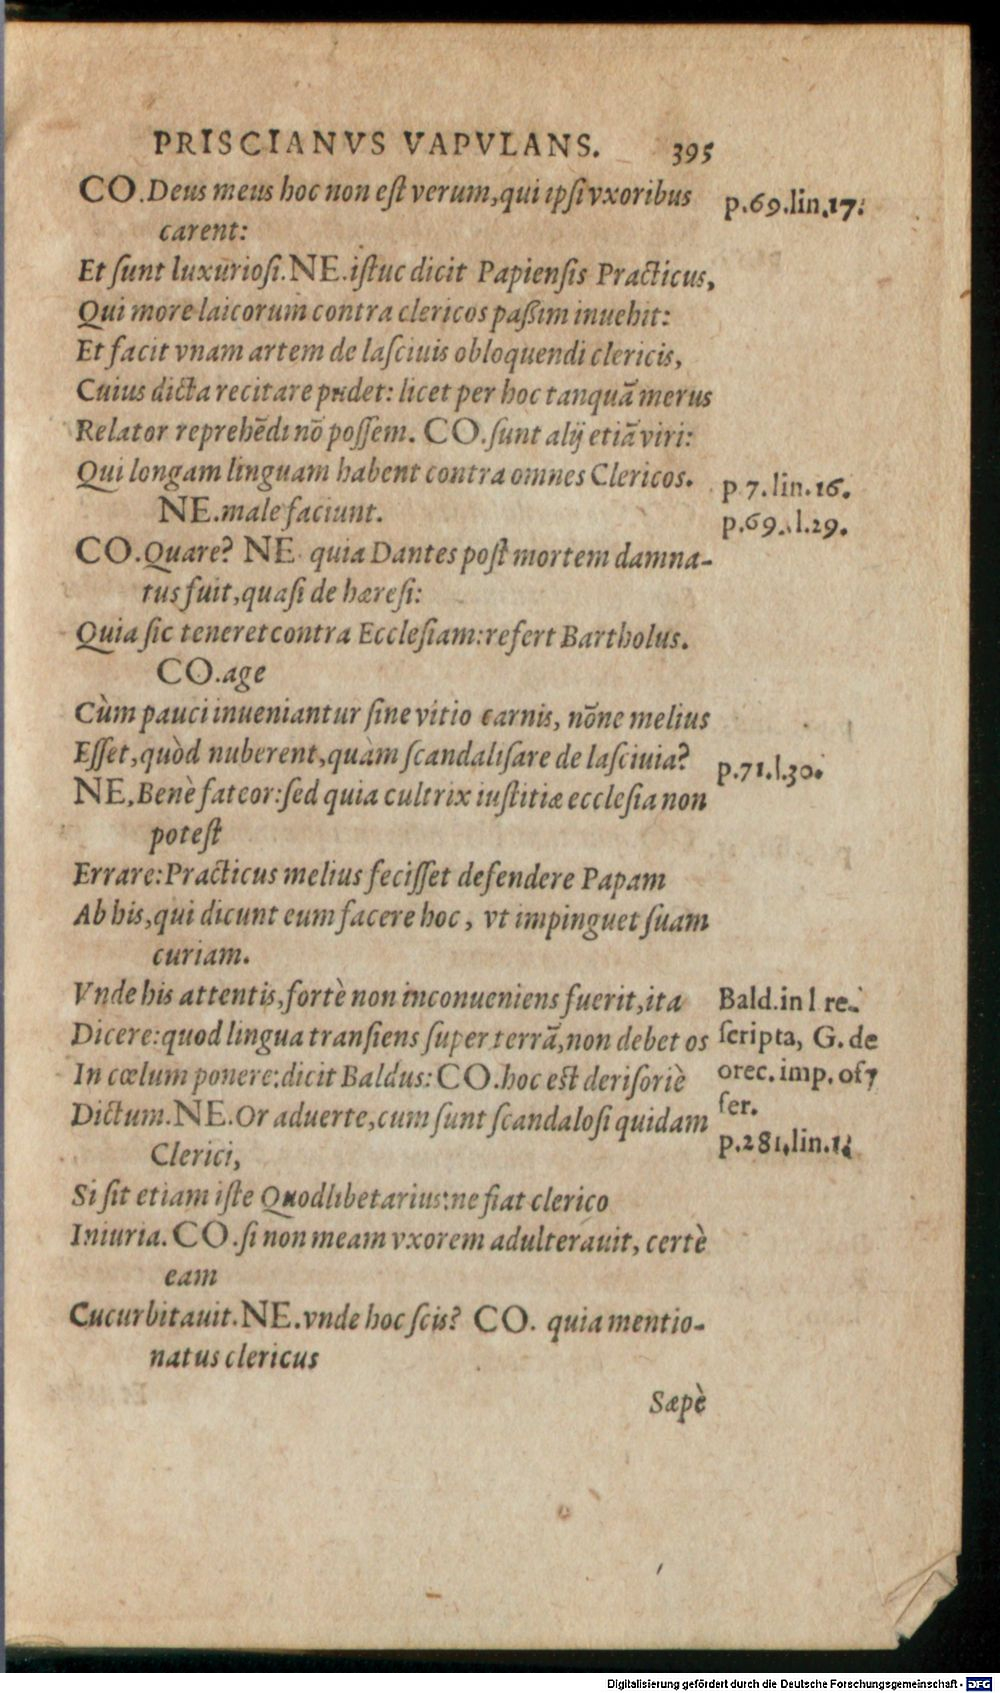 PRISCIANVS VAPVLANS. 395
CO. Deus meus hoc non est verum, qui ipsi vxoribus
carent:
p.69.lin.17.
Et sunt luxuriosi. NE. istuc dicit Papiensis Practicus,
Qui more laicorum contra clericos paßim inuehit:
Et facit vnam artem de lasciuis obloquendi clericis,
Cuius dicta recitare pudet: licet per hoc tanquā merus
Relator reprehēdi nō possem. CO. sunt alij etiā viri:
Qui longam linguam habent contra omnes Clericos.
p 7. lin. 16.
NE. male faciunt.
p.69. l.29.
CO. Quare? NE quia Dantes post mortem damna-
tus fuit, quasi de hæresi:
Quia sic teneret contra Ecclesiam: refert Bartholus.
CO. age
Cùm pauci inueniantur sine vitio carnis, nōne melius
Esset, quòd nuberent, quàm scandalisare de lasciuia?
p.71.l.30.
NE, Benè fateor: sed quia cultrix iustitiæ ecclesia non
potest
Errare: Practicus melius fecisset defendere Papam
Ab his, qui dicunt eum facere hoc, vt impinguet suam
curiam.
Vnde his attentis, fortè non inconueniens fuerit, ita
Dicere: quod lingua transiens super terrā, non debet os
In cœlum ponere: dicit Baldus: CO. hoc est derisoriè
Dictum. NE. Or aduerte, cum sunt scandalosi quidam
Clerici,
Bald. in l re-
scripta, G. de
orec. imp. of
fer.
p.281.lin.1.
Si sit etiam iste Quodlibetarius: ne fiat clerico
Iniuria. CO. si non meam vxorem adulterauit, certè
eam
Cucurbitauit. NE. vnde hoc scis? CO. quia mentio-
natus clericus
Sæpè
Digitalisierung gefördert durch die Deutsche Forschungsgemeinschaft - DFG